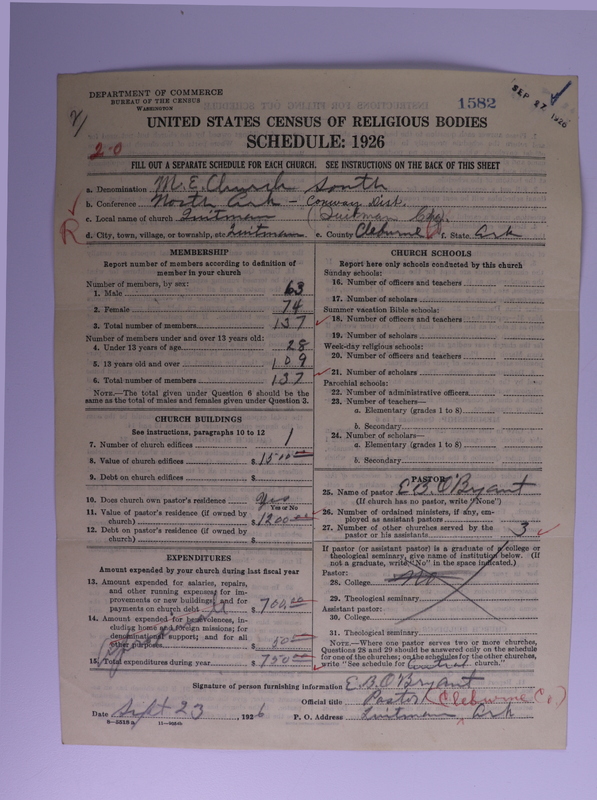 DEPARTMENT OF COMMERCE
BUREAU OF THE CENSUS
WASHINGTON
1582
SEP 27 1926
UNITED STATES CENSUS OF RELIGIOUS BODIES
SCHEDULE: 1926
2-0
FILL OUT A SEPARATE SCHEDULE FOR EACH CHURCH. SEE INSTRUCTIONS ON THE BACK OF THIS SHEET
a. Denomination M. E. Church South
b. Conference North Ark - Conway Dist.
c. Local name of church Quitman (Quitman Chg.
R
d. City, town, village, or township, etc Quitman e. County Cleburne f. State Ark
MEMBERSHIP
Report number of members according to definition of member in your church
Number of members, by sex:
1. Male 63
2. Female 74
3. Total number of members 137
Number of members under and over 13 years old:
4. Under 13 years of age 28
5. 13 years old and over 109
6. Total number of members 137
NOTE.—The total given under Question 6 should be the same as the total of males and females given under Question 3.
CHURCH BUILDINGS
See instructions, paragraphs 10 to 12
7. Number of church edifices 1
8. Value of church edifices $ 1500.00
9. Debt on church edifices $
10. Does church own pastor's residence Yes
Yes or No
11. Value of pastor's residence (if owned by church) $ 1200.00
12. Debt on pastor's residence (if owned by church) $
EXPENDITURES
Amount expended by your church during last fiscal year
13. Amount expended for salaries, repairs, and other running expenses; for improvements or new buildings; and for payments on church debt $ 700.00
14. Amount expended for benevolences, including home and foreign missions; for denominational support; and for all other purposes $ 50.00
15. Total expenditures during year $ 750.00
CHURCH SCHOOLS
Report here only schools conducted by this church
Sunday schools:
16. Number of officers and teachers
17. Number of scholars
Summer vacation Bible schools:
18. Number of officers and teachers
19. Number of scholars
Week-day religious schools:
20. Number of officers and teachers
21. Number of scholars
Parochial schools:
22. Number of administrative officers
23. Number of teachers—
a. Elementary (grades 1 to 8)
b. Secondary
24. Number of scholars—
a. Elementary (grades 1 to 8)
b. Secondary
PASTOR
25. Name of pastor E. B. O'Bryant
(If church has no pastor, write "None")
26. Number of ordained ministers, if any, employed as assistant pastors
27. Number of other churches served by the pastor or his assistants 3
If pastor (or assistant pastor) is a graduate of a college or theological seminary, give name of institution below. (If not a graduate, write "No" in the space indicated.)
Pastor:
28. College No
29. Theological seminary
Assistant pastor:
30. College
31. Theological seminary
NOTE.—Where one pastor serves two or more churches, Questions 28 and 29 should be answered only on the schedule for one of the churches; on the schedules for the other churches, write "See schedule for Central church."
Signature of person furnishing information E B O'Bryant
Official title Pastor (Cleburne Co.)
Date Sept 23, 1926 P. O. Address Quitman Ark
8—5518a